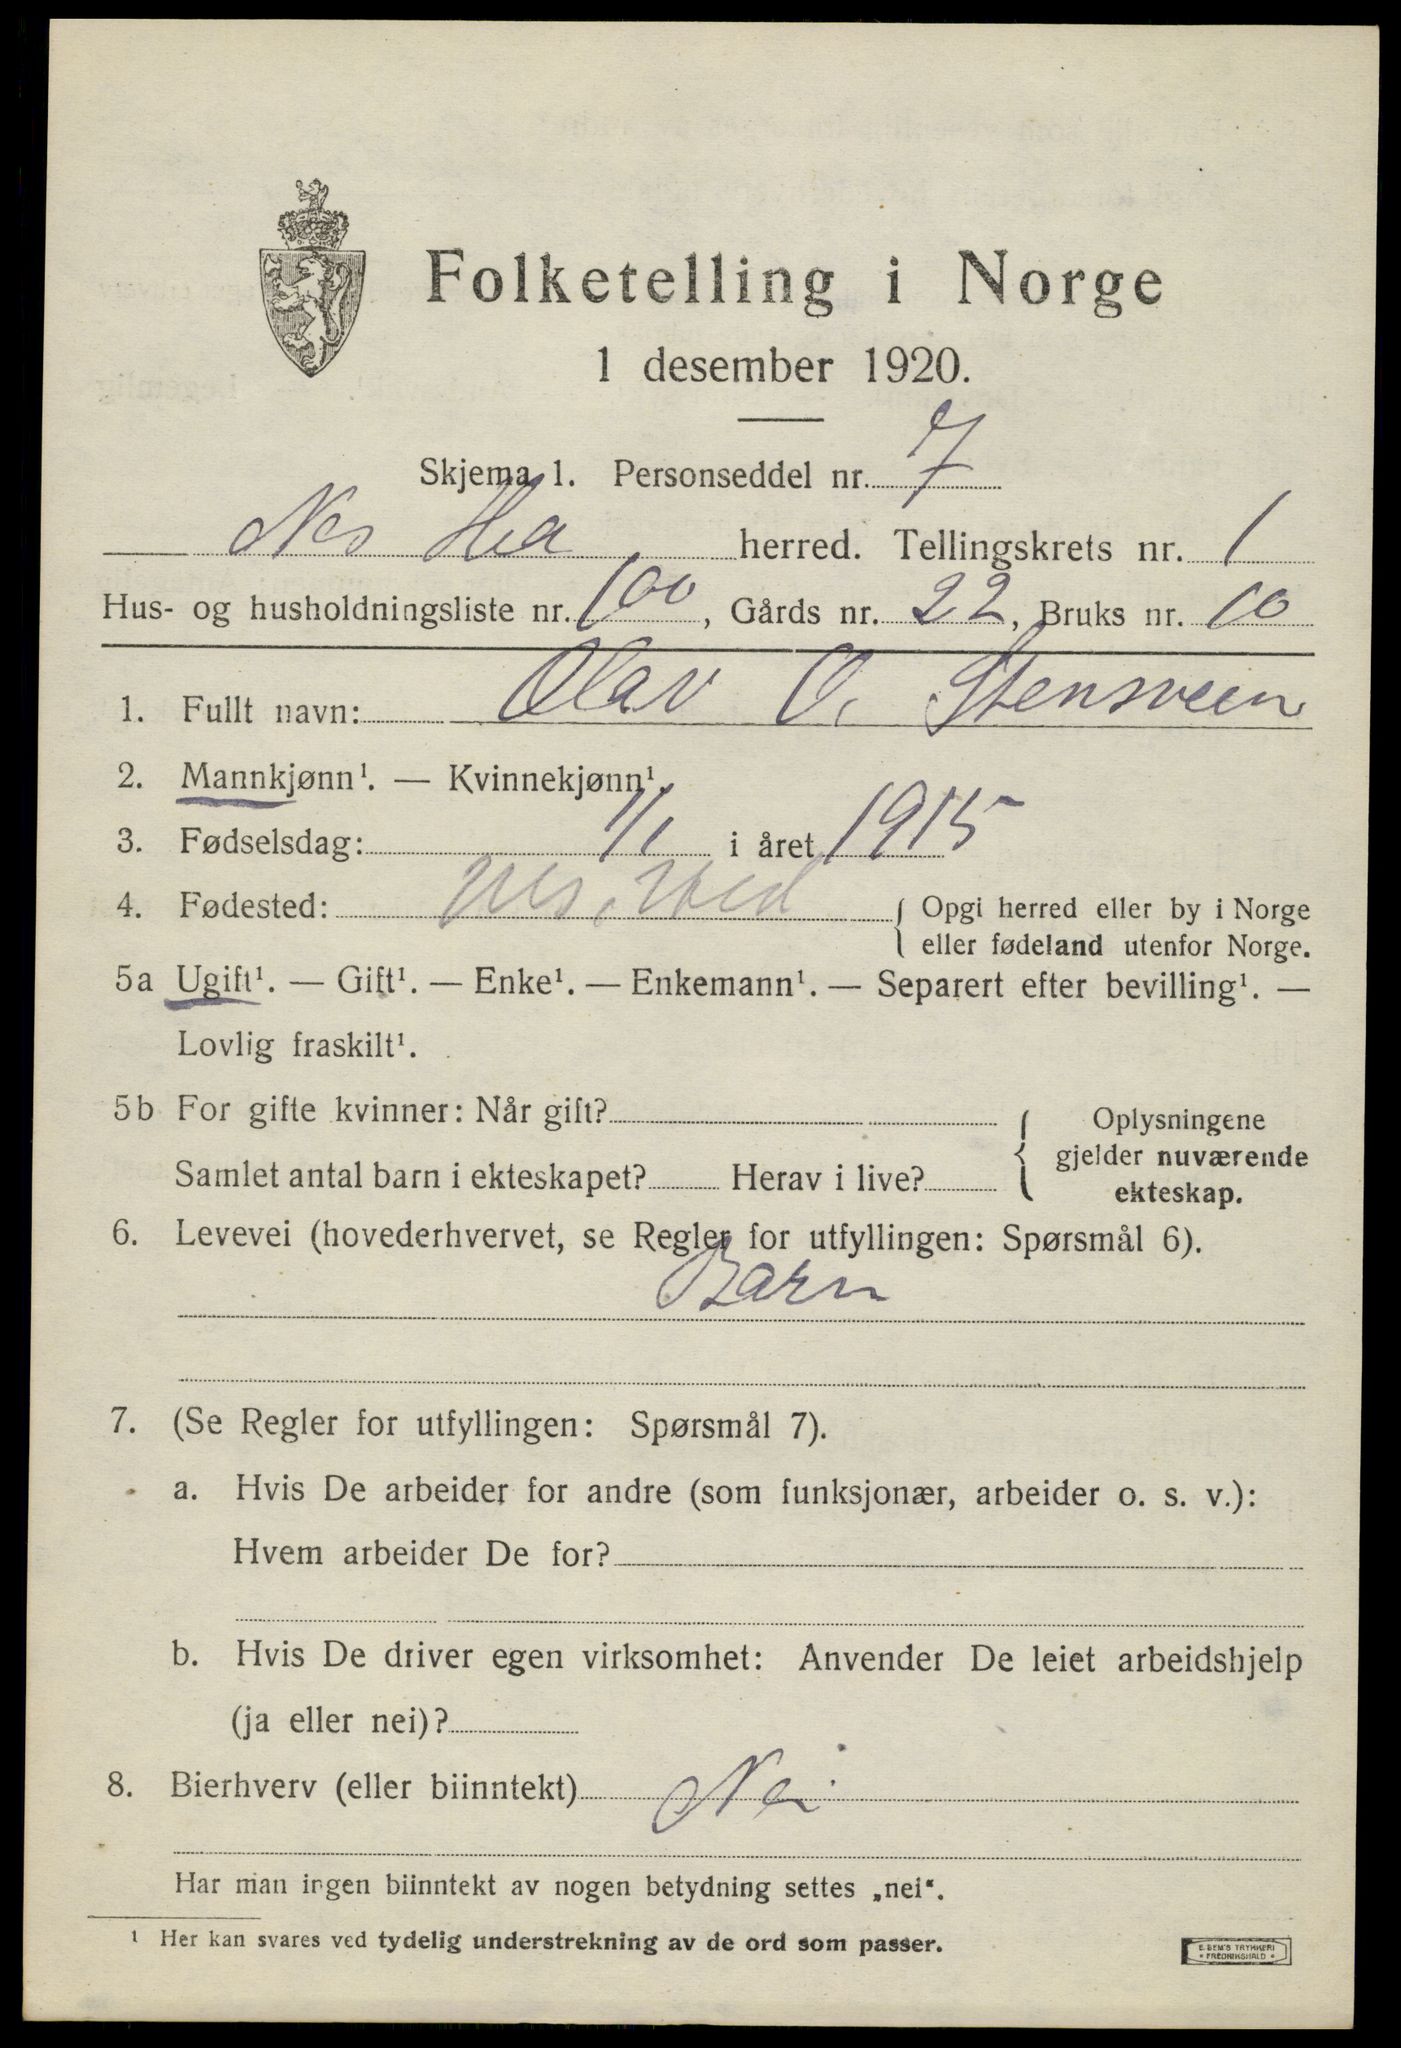 Folketelling i Norge
1 desember 1920.
Skjema 1. Personseddel nr. 7
Nes Hed herred. Tellingskrets nr. 1
Hus- og husholdningsliste nr. 100, Gårds nr. 22, Bruks nr. 10
1. Fullt navn: Olav O. Stensveen
2. Mannkjønn¹. — Kvinnekjønn¹.
3. Fødselsdag: 1/1 i året 1915
4. Fødested: Nes, Hed { Opgi herred eller by i Norge
eller fødeland utenfor Norge.
5a Ugift¹. — Gift¹. — Enke¹. — Enkemann¹. — Separert efter bevilling¹. —
Lovlig fraskilt¹.
5b For gifte kvinner: Når gift?
Samlet antal barn i ekteskapet? Herav i live?
{ Oplysningene
gjelder nuværende
ekteskap.
6. Levevei (hovederhvervet, se Regler for utfyllingen: Spørsmål 6).
Barn
7. (Se Regler for utfyllingen: Spørsmål 7).
a. Hvis De arbeider for andre (som funksjonær, arbeider o. s. v.):
Hvem arbeider De for?
b. Hvis De driver egen virksomhet: Anvender De leiet arbeidshjelp
(ja eller nei)?
8. Bierhverv (eller biinntekt) Nei
Har man ingen biinntekt av nogen betydning settes „nei“.
¹ Her kan svares ved tydelig understrekning av de ord som passer.
E. SEM'S TRYKKERI
• FREDRIKSHALD •